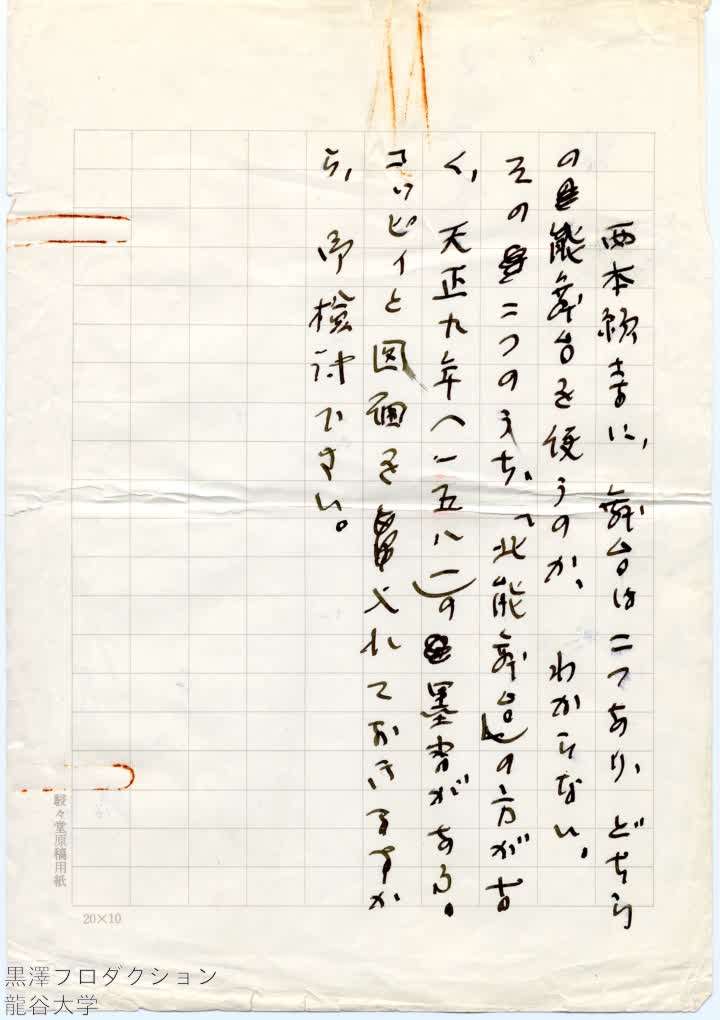 西本願寺に、舞台は二つあり、どちら
の能舞台を使うのか、わからない。
その二つのうち、「北能舞台」の方が古
く、天正九年(一五八一)の墨書がある。
コッピイと図面を入れておけますか
ら、御検討下さい。
駸々堂原稿用紙
20×10
黒澤プロダクション
龍谷大学